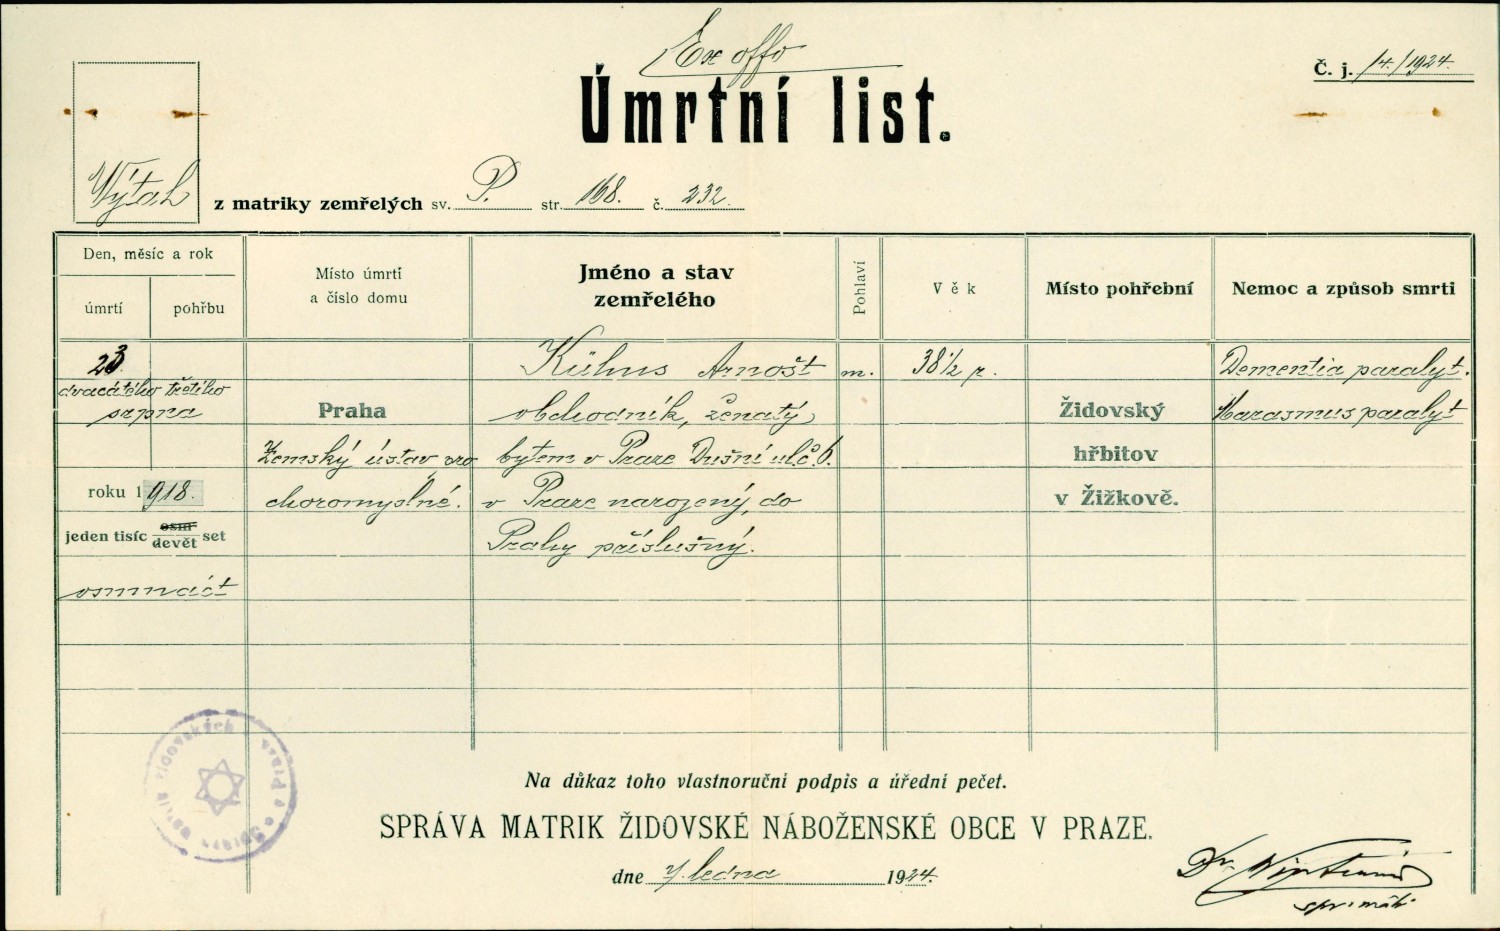 Ex offo
Č. j. 14./1924.
Úmrtní list.
Výtah z matriky zemřelých sv. P. str. 168. č. 232.
Den, měsíc a rok
úmrtí pohřbu
Místo úmrtí
a číslo domu
Jméno a stav
zemřelého
Pohlaví
Věk
Místo pohřební
Nemoc a způsob smrti
23
dvacátého třetího
srpna
roku 1918.
jeden tisíc osm set
devět
osmnáct
Praha
Zemský ústav pro
choromyslné.
Kühns Arnošt
obchodník, ženatý,
bytem v Praze Dušní ul. č. 6.
v Praze narozený, do
Prahy příslušný.
m.
38 1/2 r.
Židovský
hřbitov
v Žižkově.
Dementia paralyt.
Marasmus paralyt
Na důkaz toho vlastnoruční podpis a úřední pečet.
SPRÁVA MATRIK ŽIDOVSKÉ NÁBOŽENSKÉ OBCE V PRAZE.
dne 7. ledna 1924.
Správa matrik židovských v Praze
Dr.